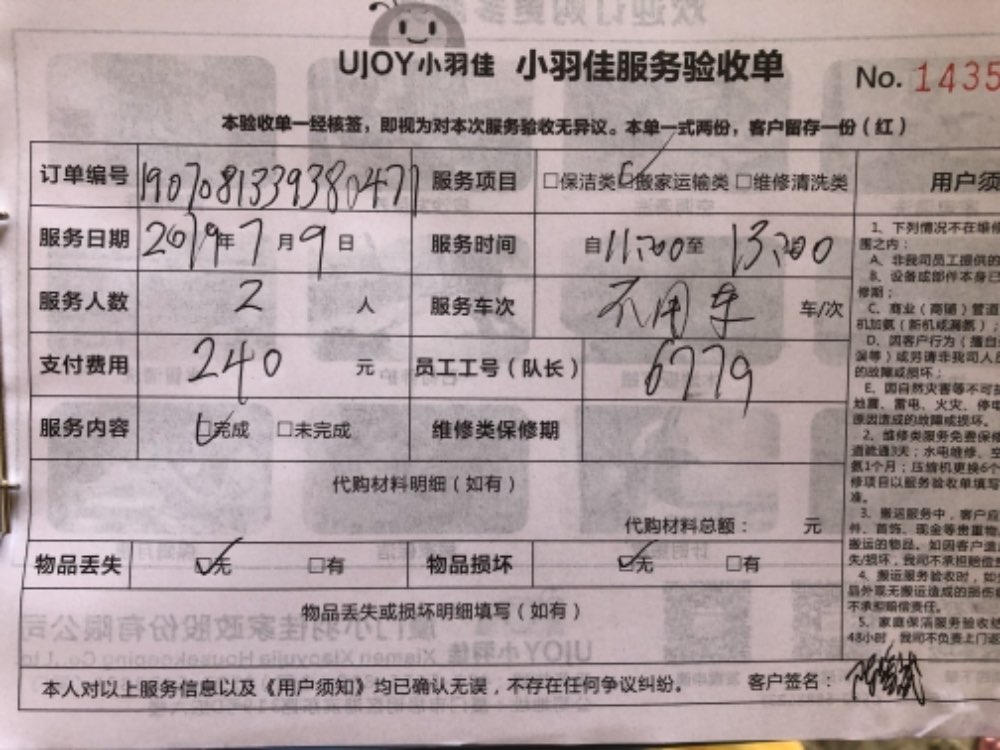 UJOY小羽佳 小羽佳服务验收单 No. 1435
本验收单一经核签，即视为对本次服务验收无异议。本单一式两份，客户留存一份（红）
订单编号 190708133938047 服务项目 □保洁类☑搬家运输类□维修清洗类
用户须
服务日期 2019年7月9日 服务时间 自11:00至13:00
服务人数 2 人 服务车次 不用车 车/次
支付费用 240 元 员工工号（队长） 6779
服务内容 ☑完成 □未完成 维修类保修期
代购材料明细（如有）
代购材料总额： 元
物品丢失 ☑无 □有 物品损坏 ☑无 □有
物品丢失或损坏明细填写（如有）
本人对以上服务信息以及《用户须知》均已确认无误，不存在任何争议纠纷。 客户签名：
1、下列情况不在维修
围之内：
A、非我司员工提供的
B、设备或部件本身已
修期；
C、商业（商铺）管道
机加氨（新机或漏氨）
D、因客户行为（擅自
误等）或另请非我司人员
的故障或损坏；
E、因自然灾害等不可抗
地震、雷电、火灾、停电
原因造成的故障或损坏。
2、维修类服务免费保修
道疏通3天；水电维修、空
氨1个月；压缩机更换6个
修项目以服务验收单填写
准。
3、搬运服务中，客户应
件、首饰、现金等贵重物
搬运的物品。如因客户遗
失/损坏，我司不承担赔偿责
4、搬运服务验收时，如
品外观无搬运造成的损伤
不承担赔偿责任。
5、家庭保洁服务验收
48小时，我司不负责上门返